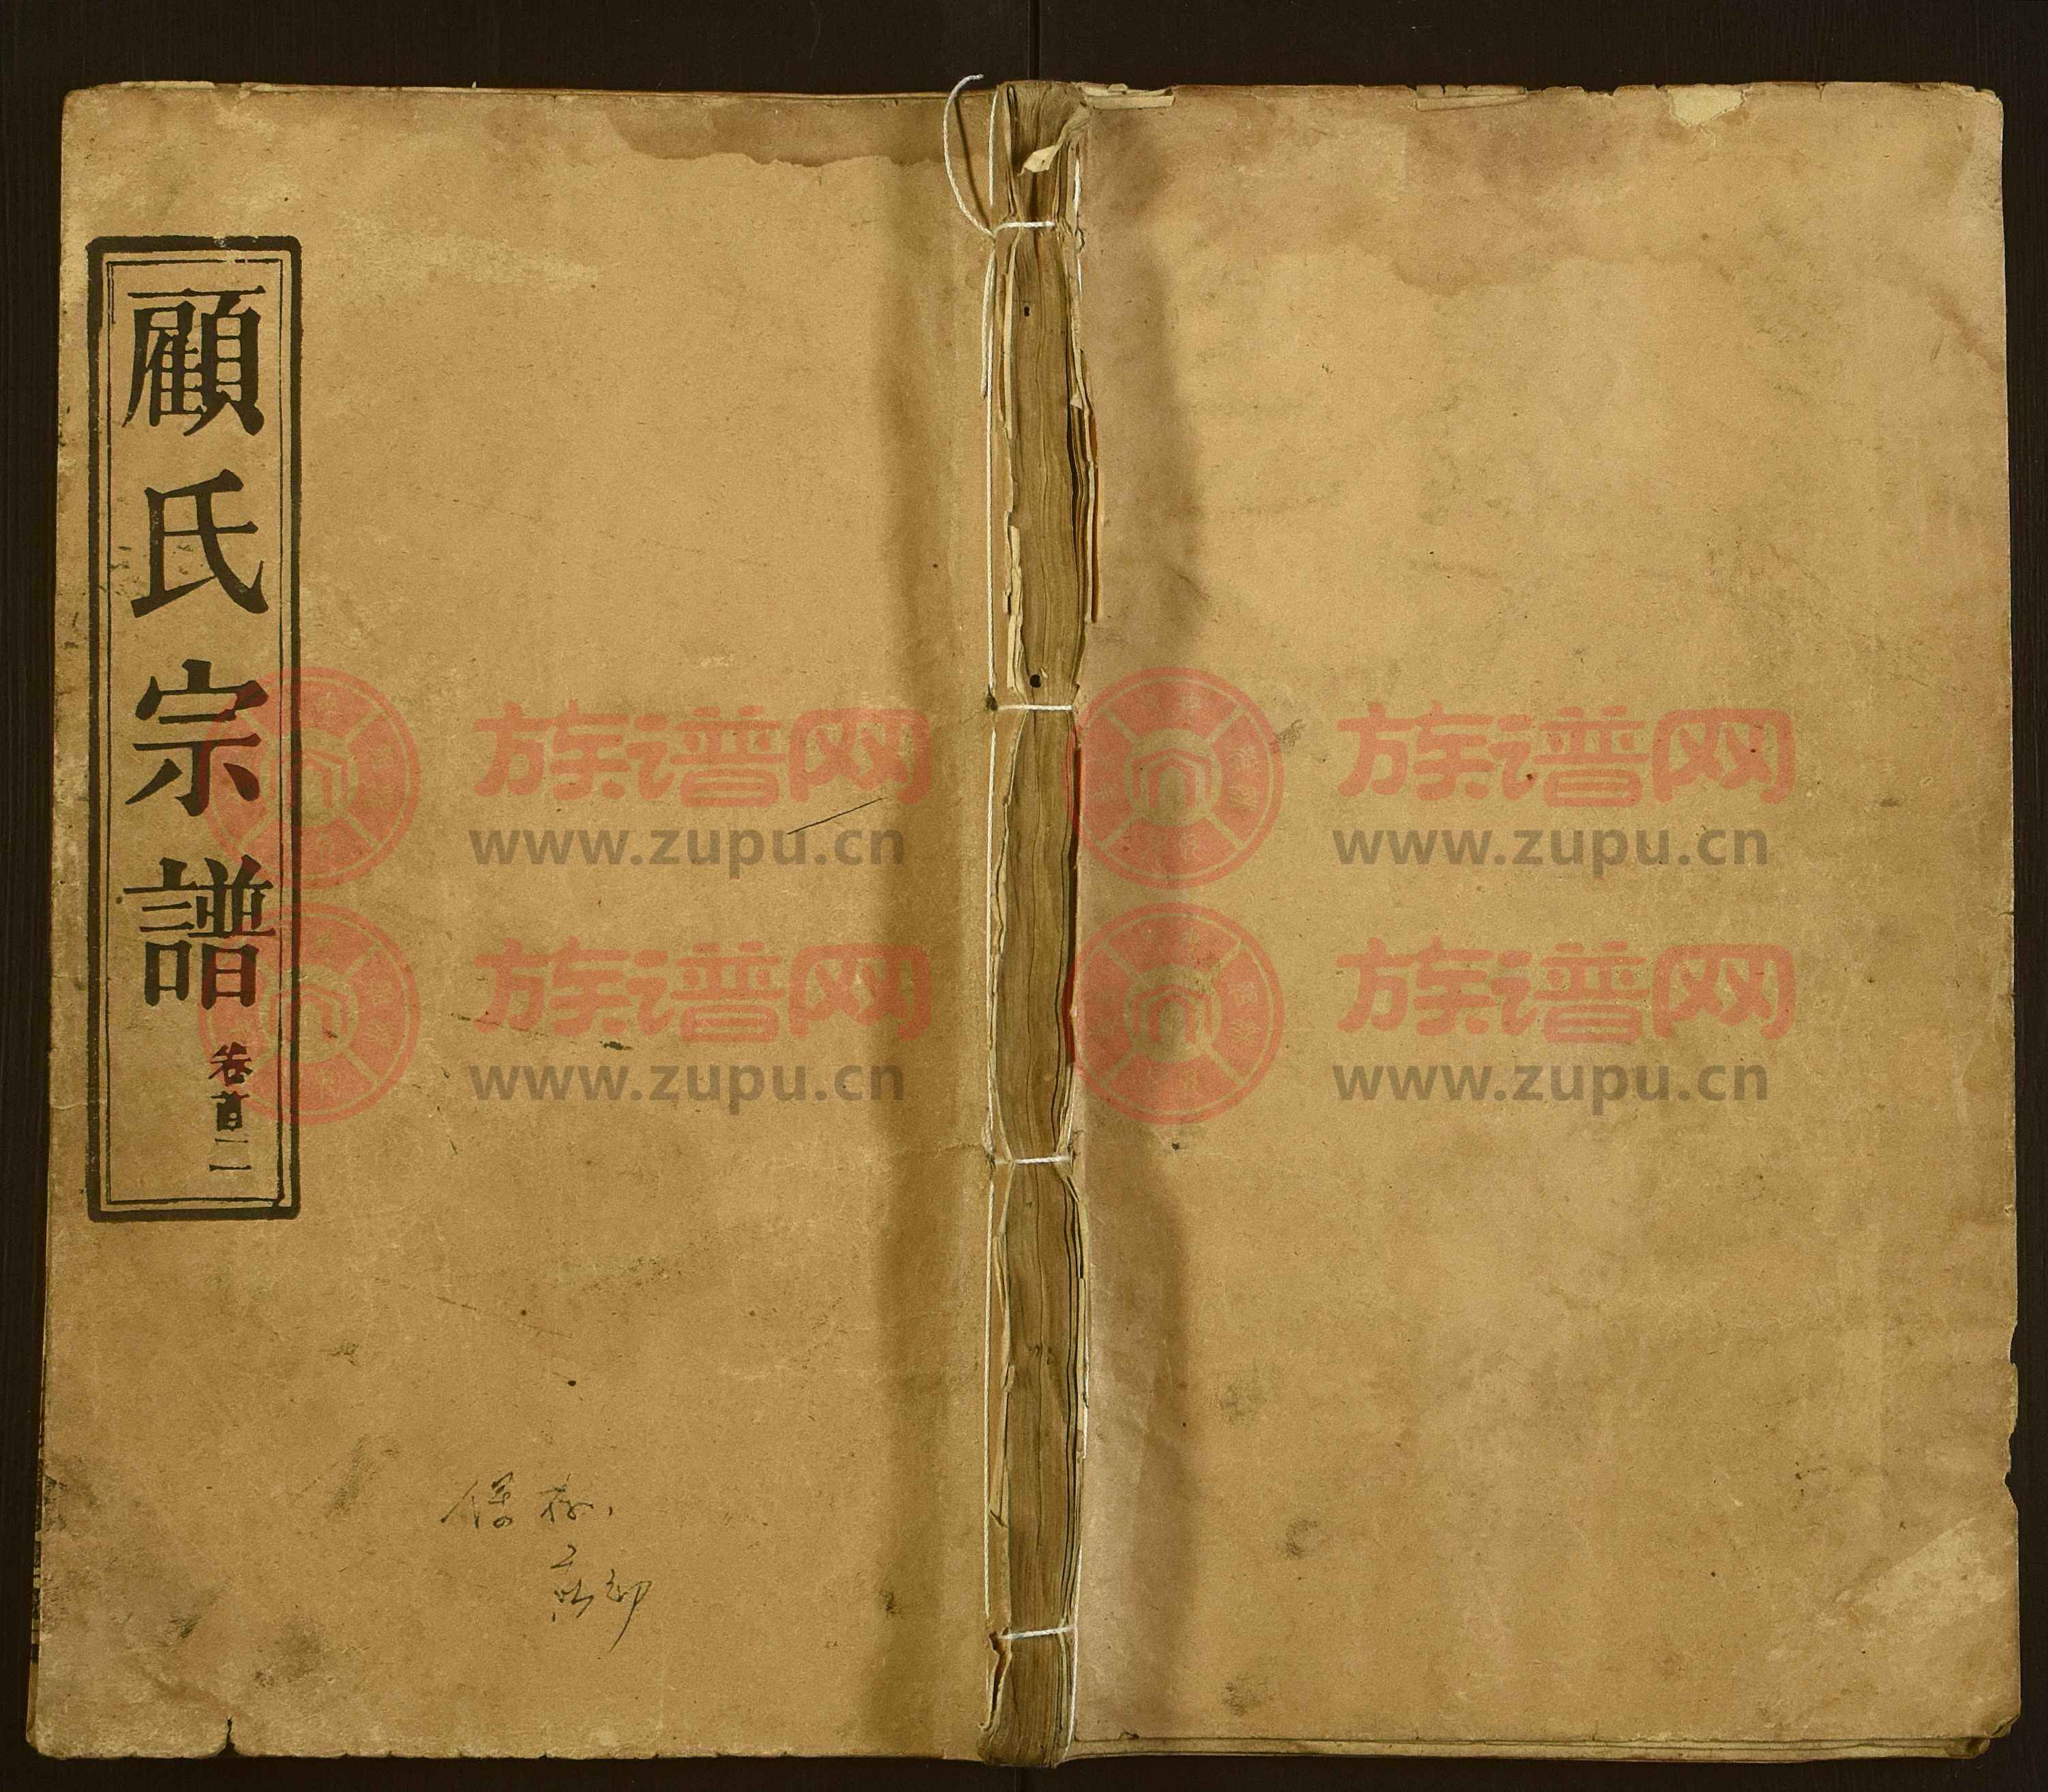 顧氏宗譜
卷首二
保存
族谱网
www.zupu.cn
族谱网
www.zupu.cn
族谱网
www.zupu.cn
族谱网
www.zupu.cn